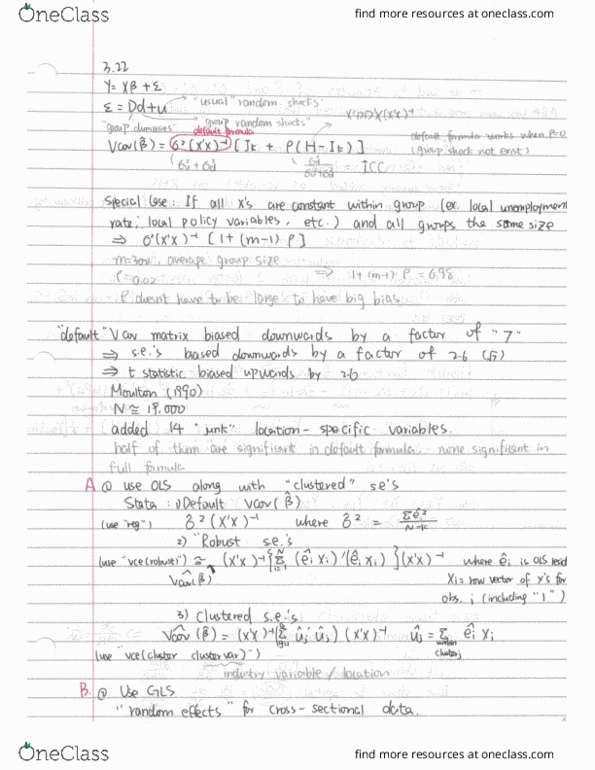 OneClass
find more resources at oneclass.com
3.22
Y = Xβ + ε
ε = Dd + u "usual" random shocks
"group dummies" "group random shocks" X'DD'X(X'X)⁻¹
default formula
Vcov(β̂) = σ²(X'X)⁻¹ [Ik + ρ(H-Ik)] default formula works when ρ=0
(group shock not exist)
= ICC
Special Case: If all X's are constant within group (ex. local unemployment
rate, local policy variables, etc.) and all groups the same size
⇒ σ²(X'X)⁻¹ [1+(m-1)ρ]
m=300, average group size
ρ=0.02 ⇒ 1+(m-1)·ρ = 6.98
ρ doesn't have to be large to have big bias.
"default" Vcov matrix biased downwards by a factor of "7"
⇒ s.e.'s biased downwards by a factor of 2.6 (√7)
⇒ t statistic biased upwards by 2.6
Moulton (1990)
N ≅ 19,000
added 14 "junk" location-specific variables.
half of them are significant in default formula, none significant in
full formula
A @ use OLS along with "clustered" se's
Stata: 1) Default Vcov(β̂)
(use "reg") σ̂²(X'X)⁻¹ where σ̂² = Σêi²/N-k
2) "Robust" s.e.'s
(use "vce(robust)") ≅ (X'X)⁻¹{Σ(êi Xi)'(êi Xi)}(X'X)⁻¹ where êi is OLS resid
Vcov(β̂) Xi = row vector of x's for
obs. i (including "1")
3) Clustered s.e.'s
Vcov(β̂) = (X'X)⁻¹(Σ ûj' ûj)(X'X)⁻¹ ûj = Σ êi Xi
within cluster j
(use "vce(cluster clustervar)")
industry variable / location
B @ Use GLS
"random effects" for cross-sectional data.
OneClass
find more resources at oneclass.com